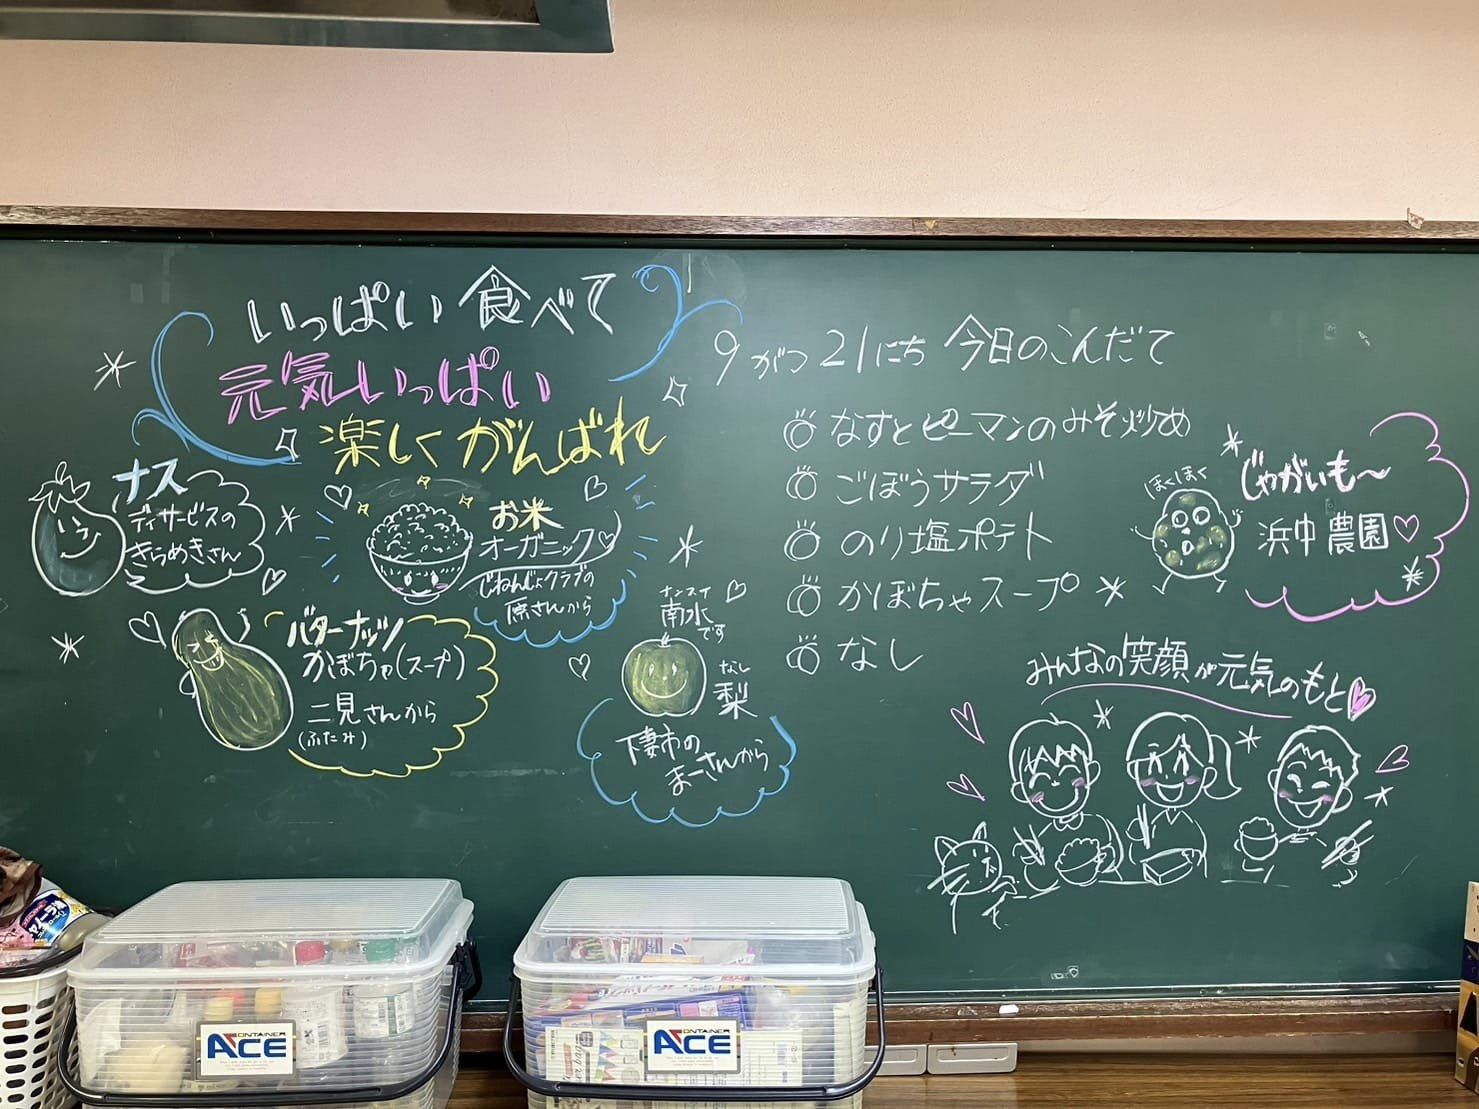 いっぱい食べて
元気いっぱい
楽しくがんばれ
ナス
デイサービスの
きらめきさん
お米
オーガニック
じねんじょクラブの
原さんから
バターナッツ
かぼちゃ(スープ)
二見さんから
(ふたみ)
ナンスイ
南水
です
なし
梨
下妻市の
まーさんから
9がつ21にち 今日のこんだて
なすとピーマンのみそ炒め
ごぼうサラダ
のり塩ポテト
かぼちゃスープ
なし
ほくほく
じゃがいも〜
浜中農園
みんなの笑顔が元気のもと
CONTAINER
ACE
CONTAINER
ACE